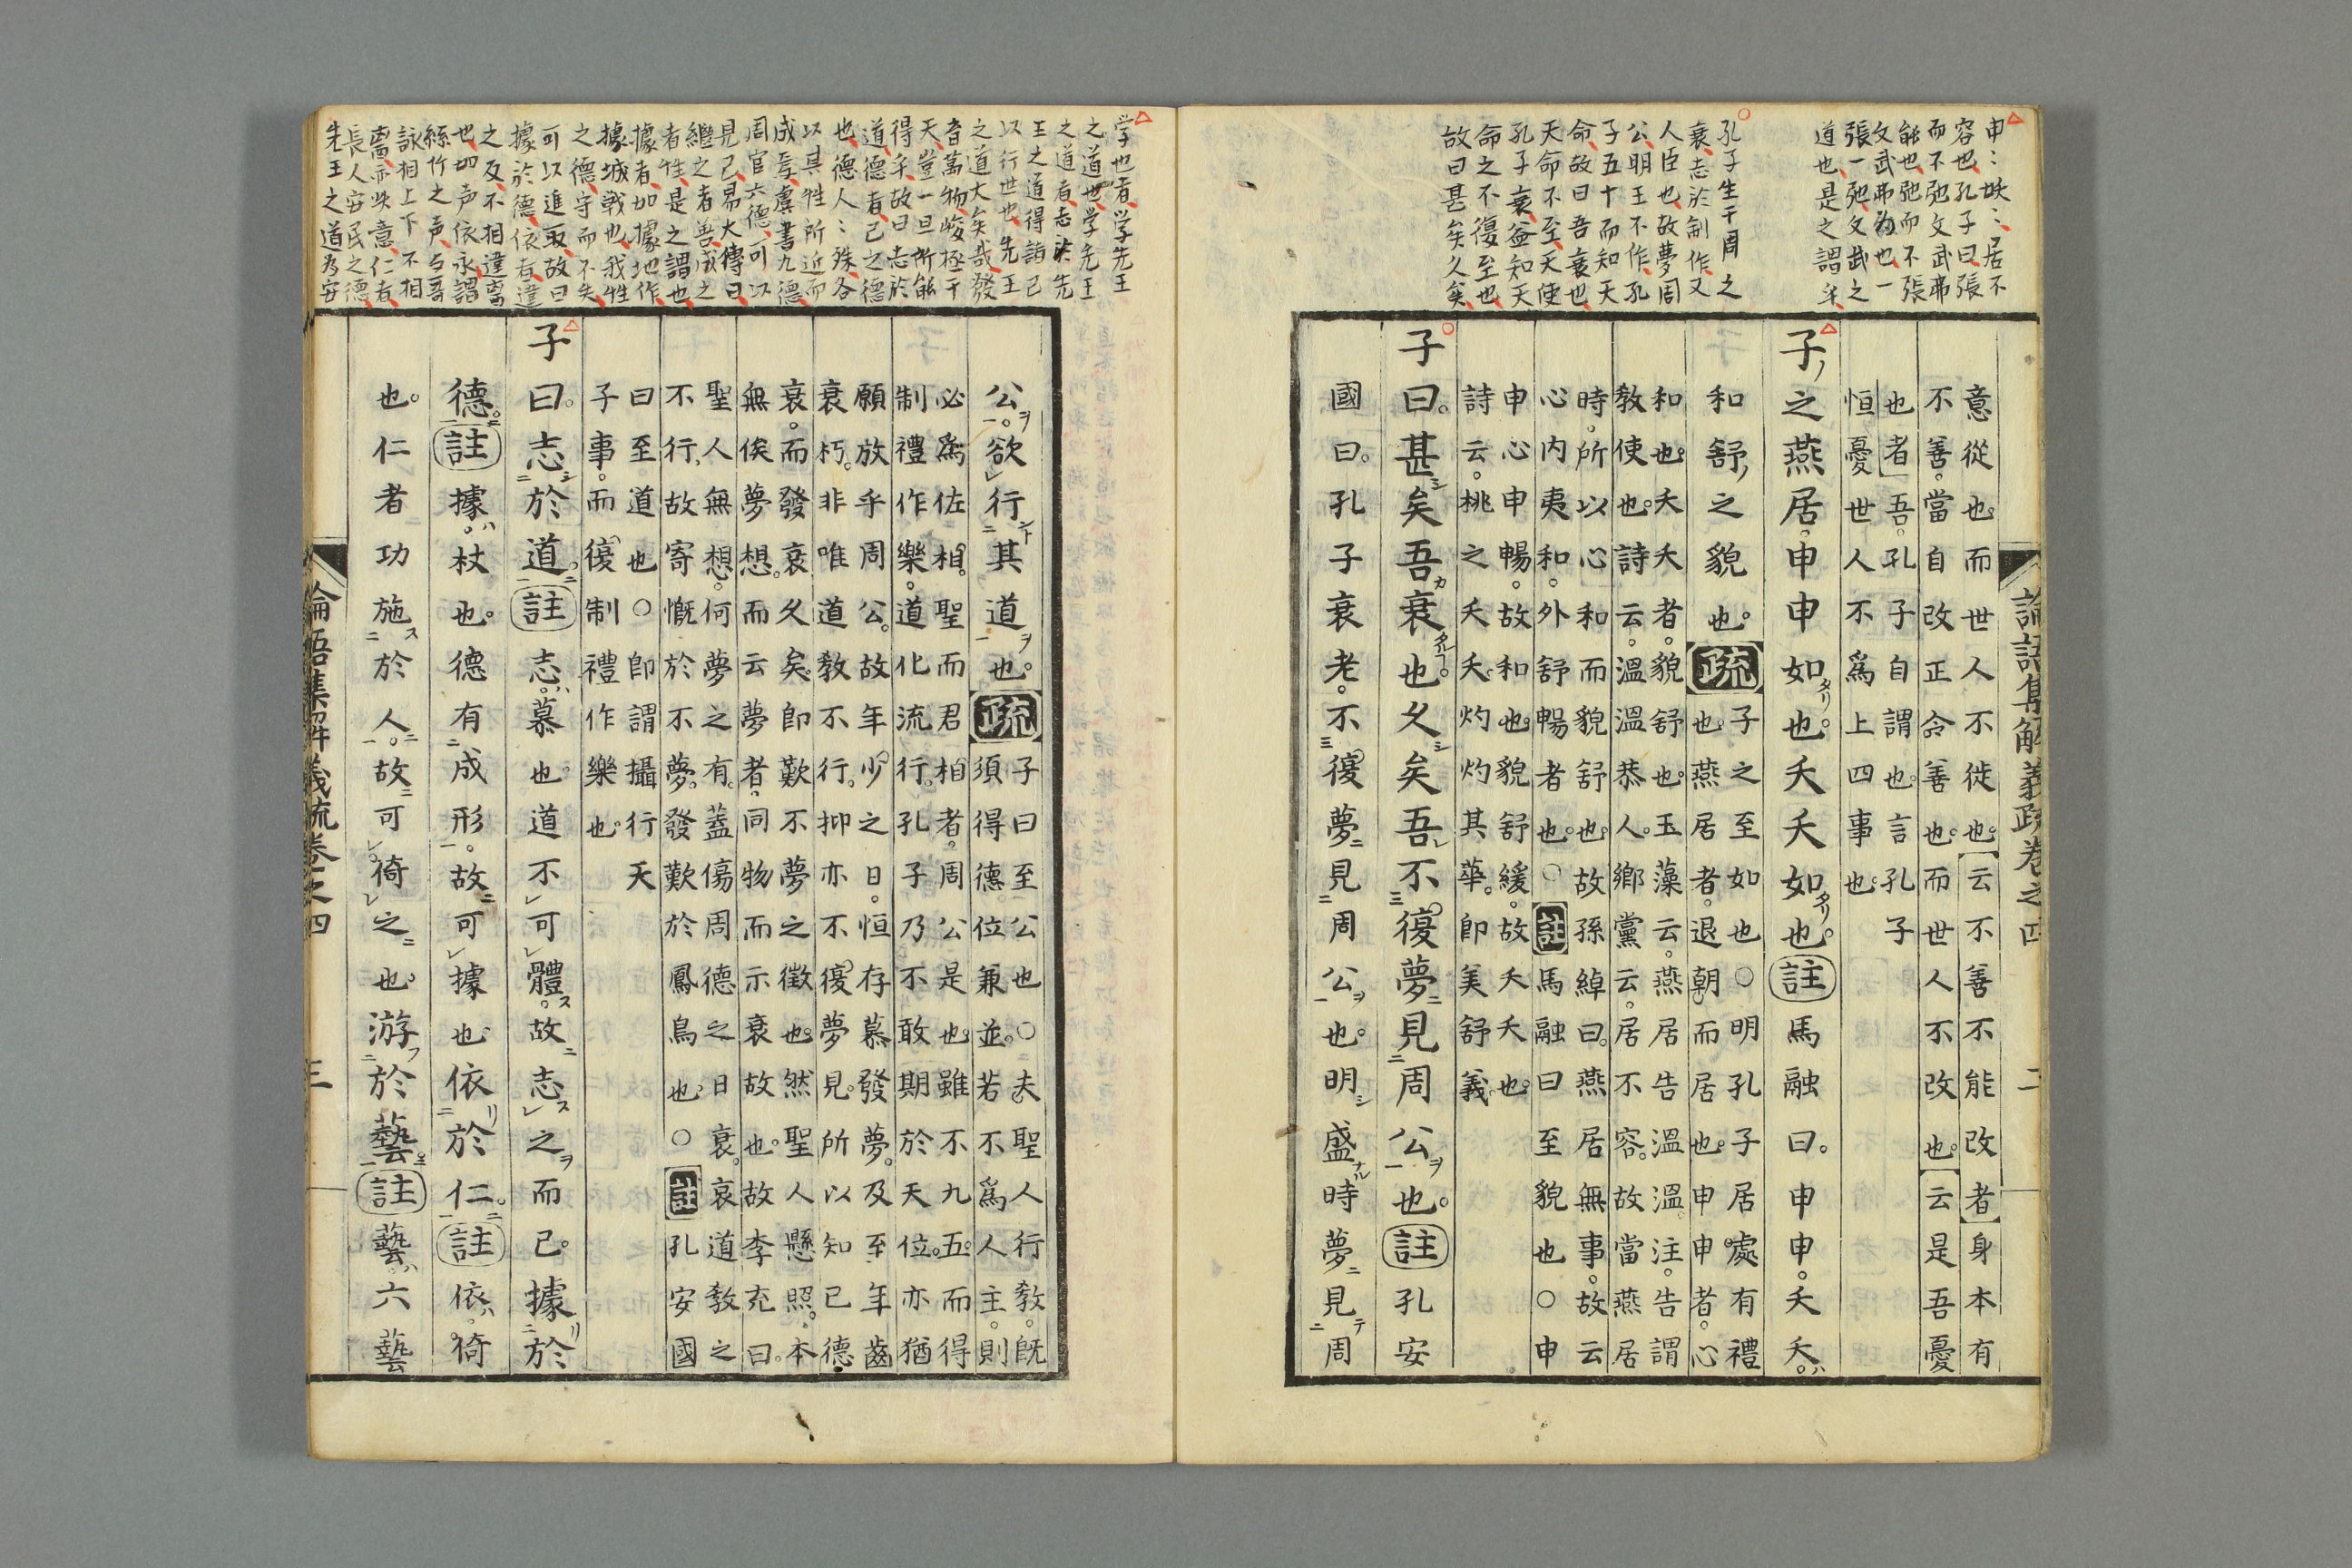 申〻妖〻居不
容也孔子曰張
而不弛文武弗
能也弛而不張
文武弗為也一
張一弛文武之
道也是之謂乎
孔子生于周之
衰志於制作又
人臣也故夢周
公明王不作孔
子五十而知天
命故曰吾衰也
天命不至天使
孔子衰益知天
命之不復至也
故曰甚矣久矣
意從也而世人不徙也云不善不能改者身本有
不善當自改正令善也而世人不改也云是吾憂
也者吾孔子自謂也言孔子
恒憂世人不爲上四事也
子之燕居申申如也夭夭如也註馬融曰申申夭夭
和舒之貌也疏子之至如也○明孔子居處有禮
也燕居者退朝而居也申申者心
和也夭夭者貌舒也玉藻云燕居告溫溫注告謂
敎使也詩云溫溫恭人鄉黨云居不容故當燕居
時所以心和而貌舒也故孫綽曰燕居無事故云
心內夷和外舒暢者也○註馬融曰至貌也○申
申心申暢故和也貌舒緩故夭夭也
詩云桃之夭夭灼灼其華卽美舒義
子曰甚矣吾衰也久矣吾不復夢見周公也註孔安
國曰孔子衰老不復夢見周公也明盛時夢見周
論語集解義疏卷之四
二
学也者学先王
之道也学先王
之道者志於先
王之道得諸己
以行世也先王
之道大矣哉發
育萬物峻極于
天豈一旦所能
得乎故曰志於
道德者己之德
也德人〻殊各
以其性所近而
成焉虞書九德
周官六德可以
見已易大傳曰
繼之者善成之
者性是之謂也
據者如據地作
據城戦也我性
之德守而不失
可以進取故曰
據於德依者違
之反不相違离
也如声依永謂
絲竹之声与哥
詠相上下不相
离而央意仁者
長人安民之德
先王之道為安
公欲行其道也疏子曰至公也○夫聖人行敎旣
須得德位兼並若不爲人主則
必爲佐相聖而君相者周公是也雖不九五而得
制禮作樂道化流行孔子乃不敢期於天位亦猶
願放乎周公故年少之日恒存慕發夢及至年齒
衰朽非唯道敎不行抑亦不復夢見所以知己德
衰而發衰久矣卽歎不夢之徵也然聖人懸照本
無俟夢想而云夢者同物而示衰故也故李充曰
聖人無想何夢之有蓋傷周德之日衰哀道敎之
不行故寄慨於不夢發歎於鳳鳥也○註孔安國
曰至道也○卽謂攝行天
子事而復制禮作樂也
子曰志於道註志慕也道不可體故志之而已據於
德註據杖也德有成形故可據也依於仁註依倚
也仁者功施於人故可倚之也游於藝註藝六藝
論語集解義疏卷之四
三